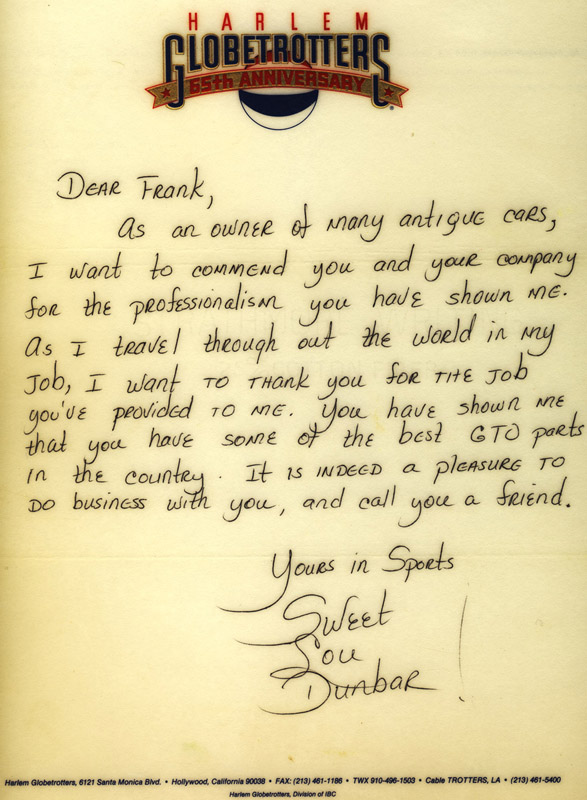 HARLEM
GLOBETROTTERS
65th ANNIVERSARY
Dear Frank,
As an owner of many antique cars,
I want to commend you and your company
for the professionalism you have shown me.
As I travel through out the world in my
job, I want to thank you for the job
you've provided to me. You have shown me
that you have some of the best GTO parts
in the country. It is indeed a pleasure to
do business with you, and call you a friend.
Yours in Sports
Sweet
Lou
Dunbar!
Harlem Globetrotters, 6121 Santa Monica Blvd. • Hollywood, California 90038 • FAX: (213) 461-1186 • TWX 910-496-1503 • Cable TROTTERS, LA • (213) 461-5400
Harlem Globetrotters, Division of IBC